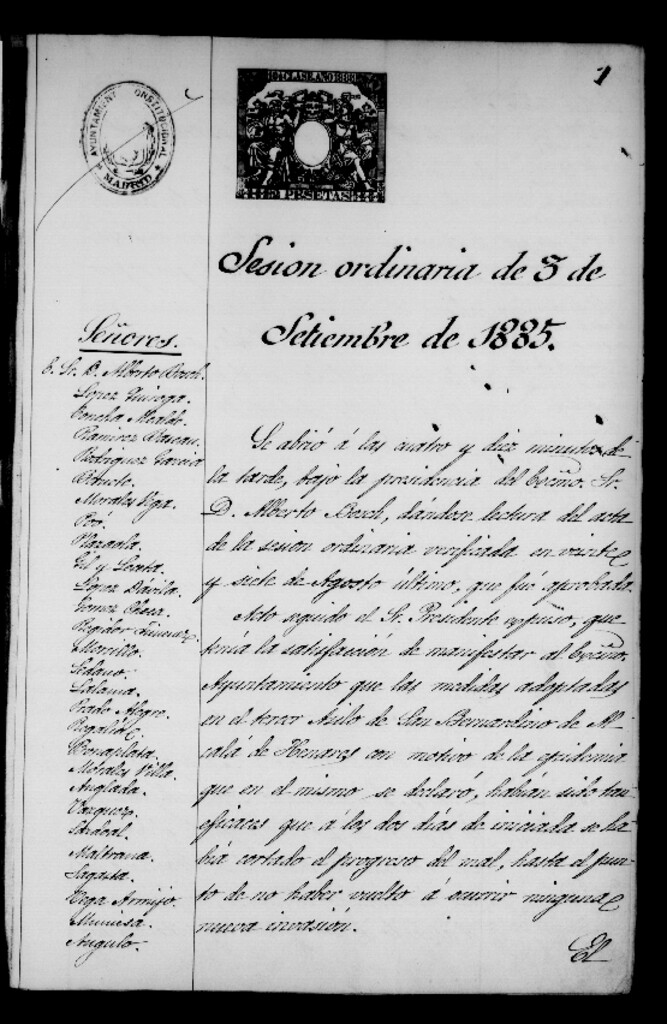 1
AYUNTAMIENTO CONSTITUCIONAL
MADRID
PESETAS
Sesion ordinaria de 3 de
Setiembre de 1885.
Señores.
E. Sr. D. Alberto Bosch.
Lopez Quiroga.
Concha Alcalde.
Ramirez
Rodriguez Garcia
Morales Vega.
Plazaola.
Gil y Leceta.
Lopez Dávila.
Gomez
Regidor Gimenez.
Morcillo.
Sedano.
Lalama.
Prado Alegre.
Rogalio
Peñaplata.
Morales Villa.
Anglada.
Vazquez.
Maltrana.
Sagasta.
Vega Armijo.
Muniesa.
Angulo.
Se abrió á las cuatro y diez minutos de
la tarde, bajo la presidencia del Excmo. Sr.
D. Alberto Bosch, dándose lectura del acta
de la sesion ordinaria verificada en veinte
y siete de Agosto último, que fué aprobada.
Acto seguido el Sr. Presidente expuso, que
tenia la satisfacción de manifestar al Excmo.
Ayuntamiento que las medidas adoptadas
en el tercer Asilo de San Bernardino de Al
calá de Henares con motivo de la epidemia
que en el mismo se declaró, habian sido tan
eficaces que á los dos dias de iniciada se ha
bia cortado el progreso del mal, hasta el pun
to de no haber vuelto á ocurrir ninguna
nueva invasión.
El